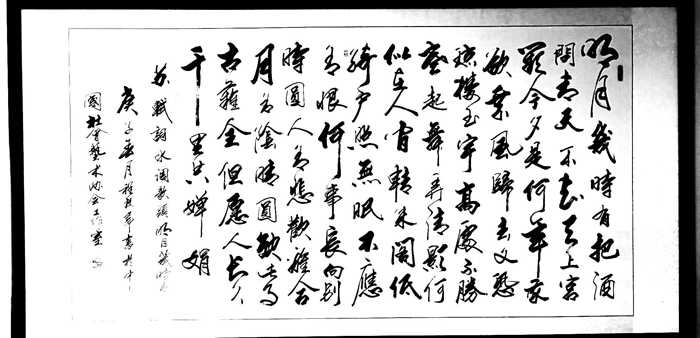 明月幾時有把酒
問青天不知天上宮
闕今夕是何年我
欲乘風歸去又恐
瓊樓玉宇高處不勝
寒起舞弄清影何
似在人間轉朱閣低
綺户照無眠不應
有恨何事長向別
時圓人有悲歡離合
月有陰晴圓缺此事
古難全但愿人長久
千里共嬋娟
苏軾詞水调歌頭明月幾時有
庚子月程於中
國社會藝术协会工作室